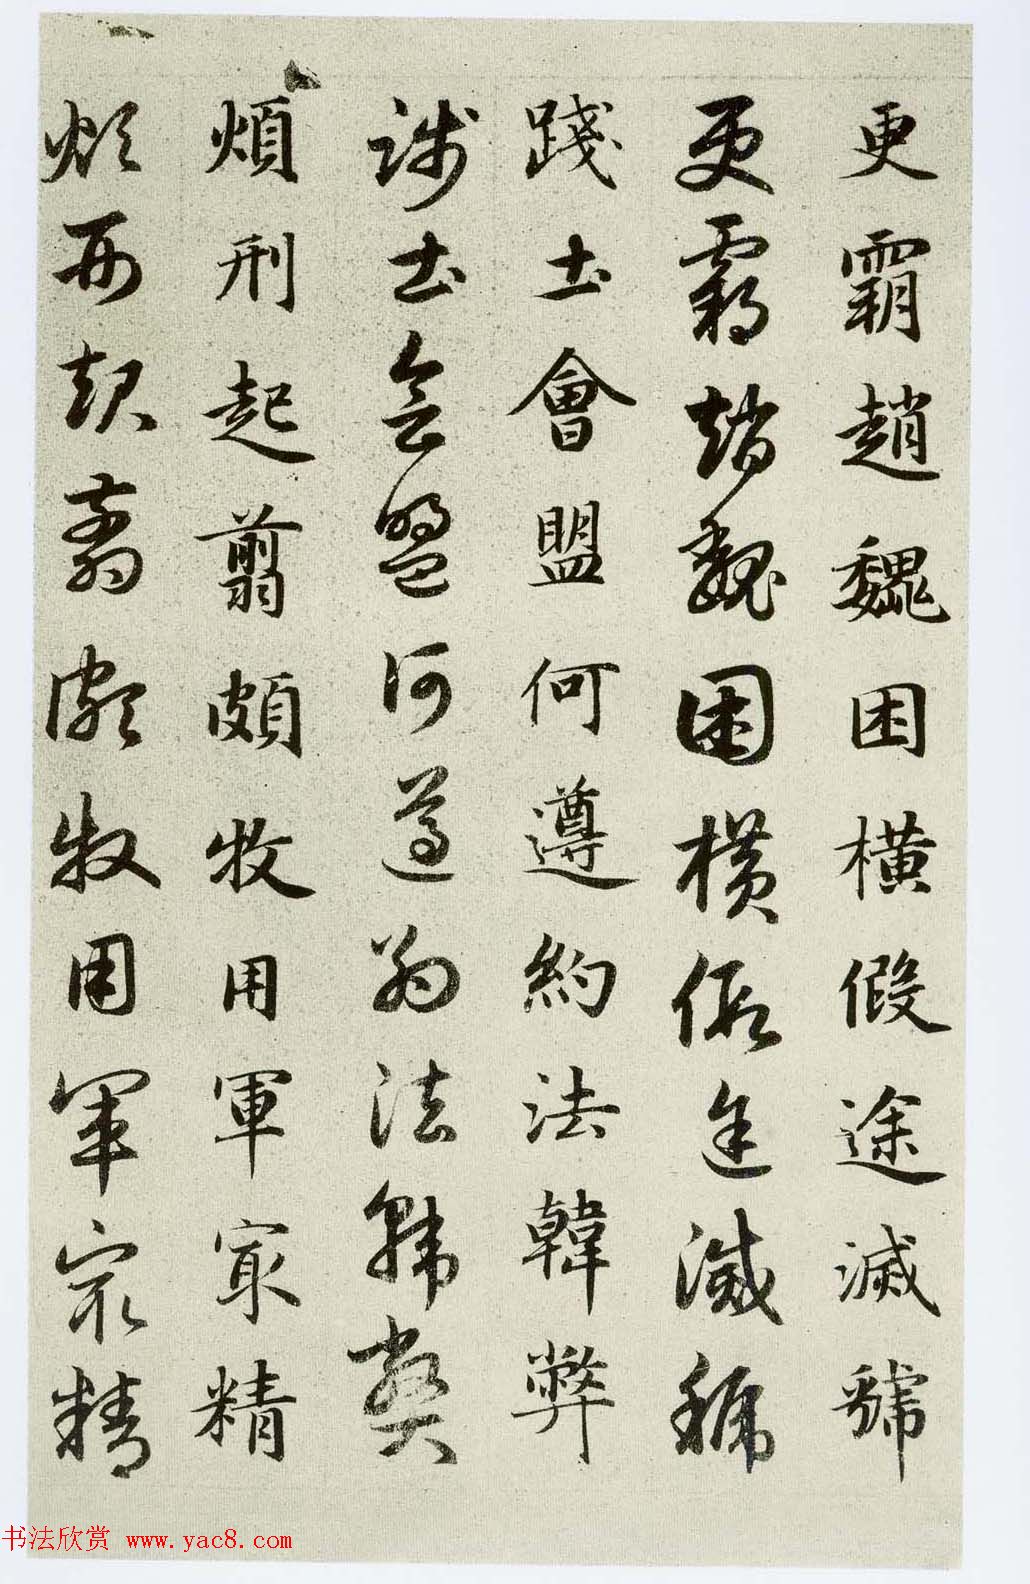 更霸趙魏困橫假途滅虢
更霸趙魏困橫假途滅虢
踐土會盟何遵約法韓弊
踐土會盟何遵約法韓弊
煩刑起翦頗牧用軍冣精
煩刑起翦頗牧用軍冣精
书法欣赏 www.yac8.com